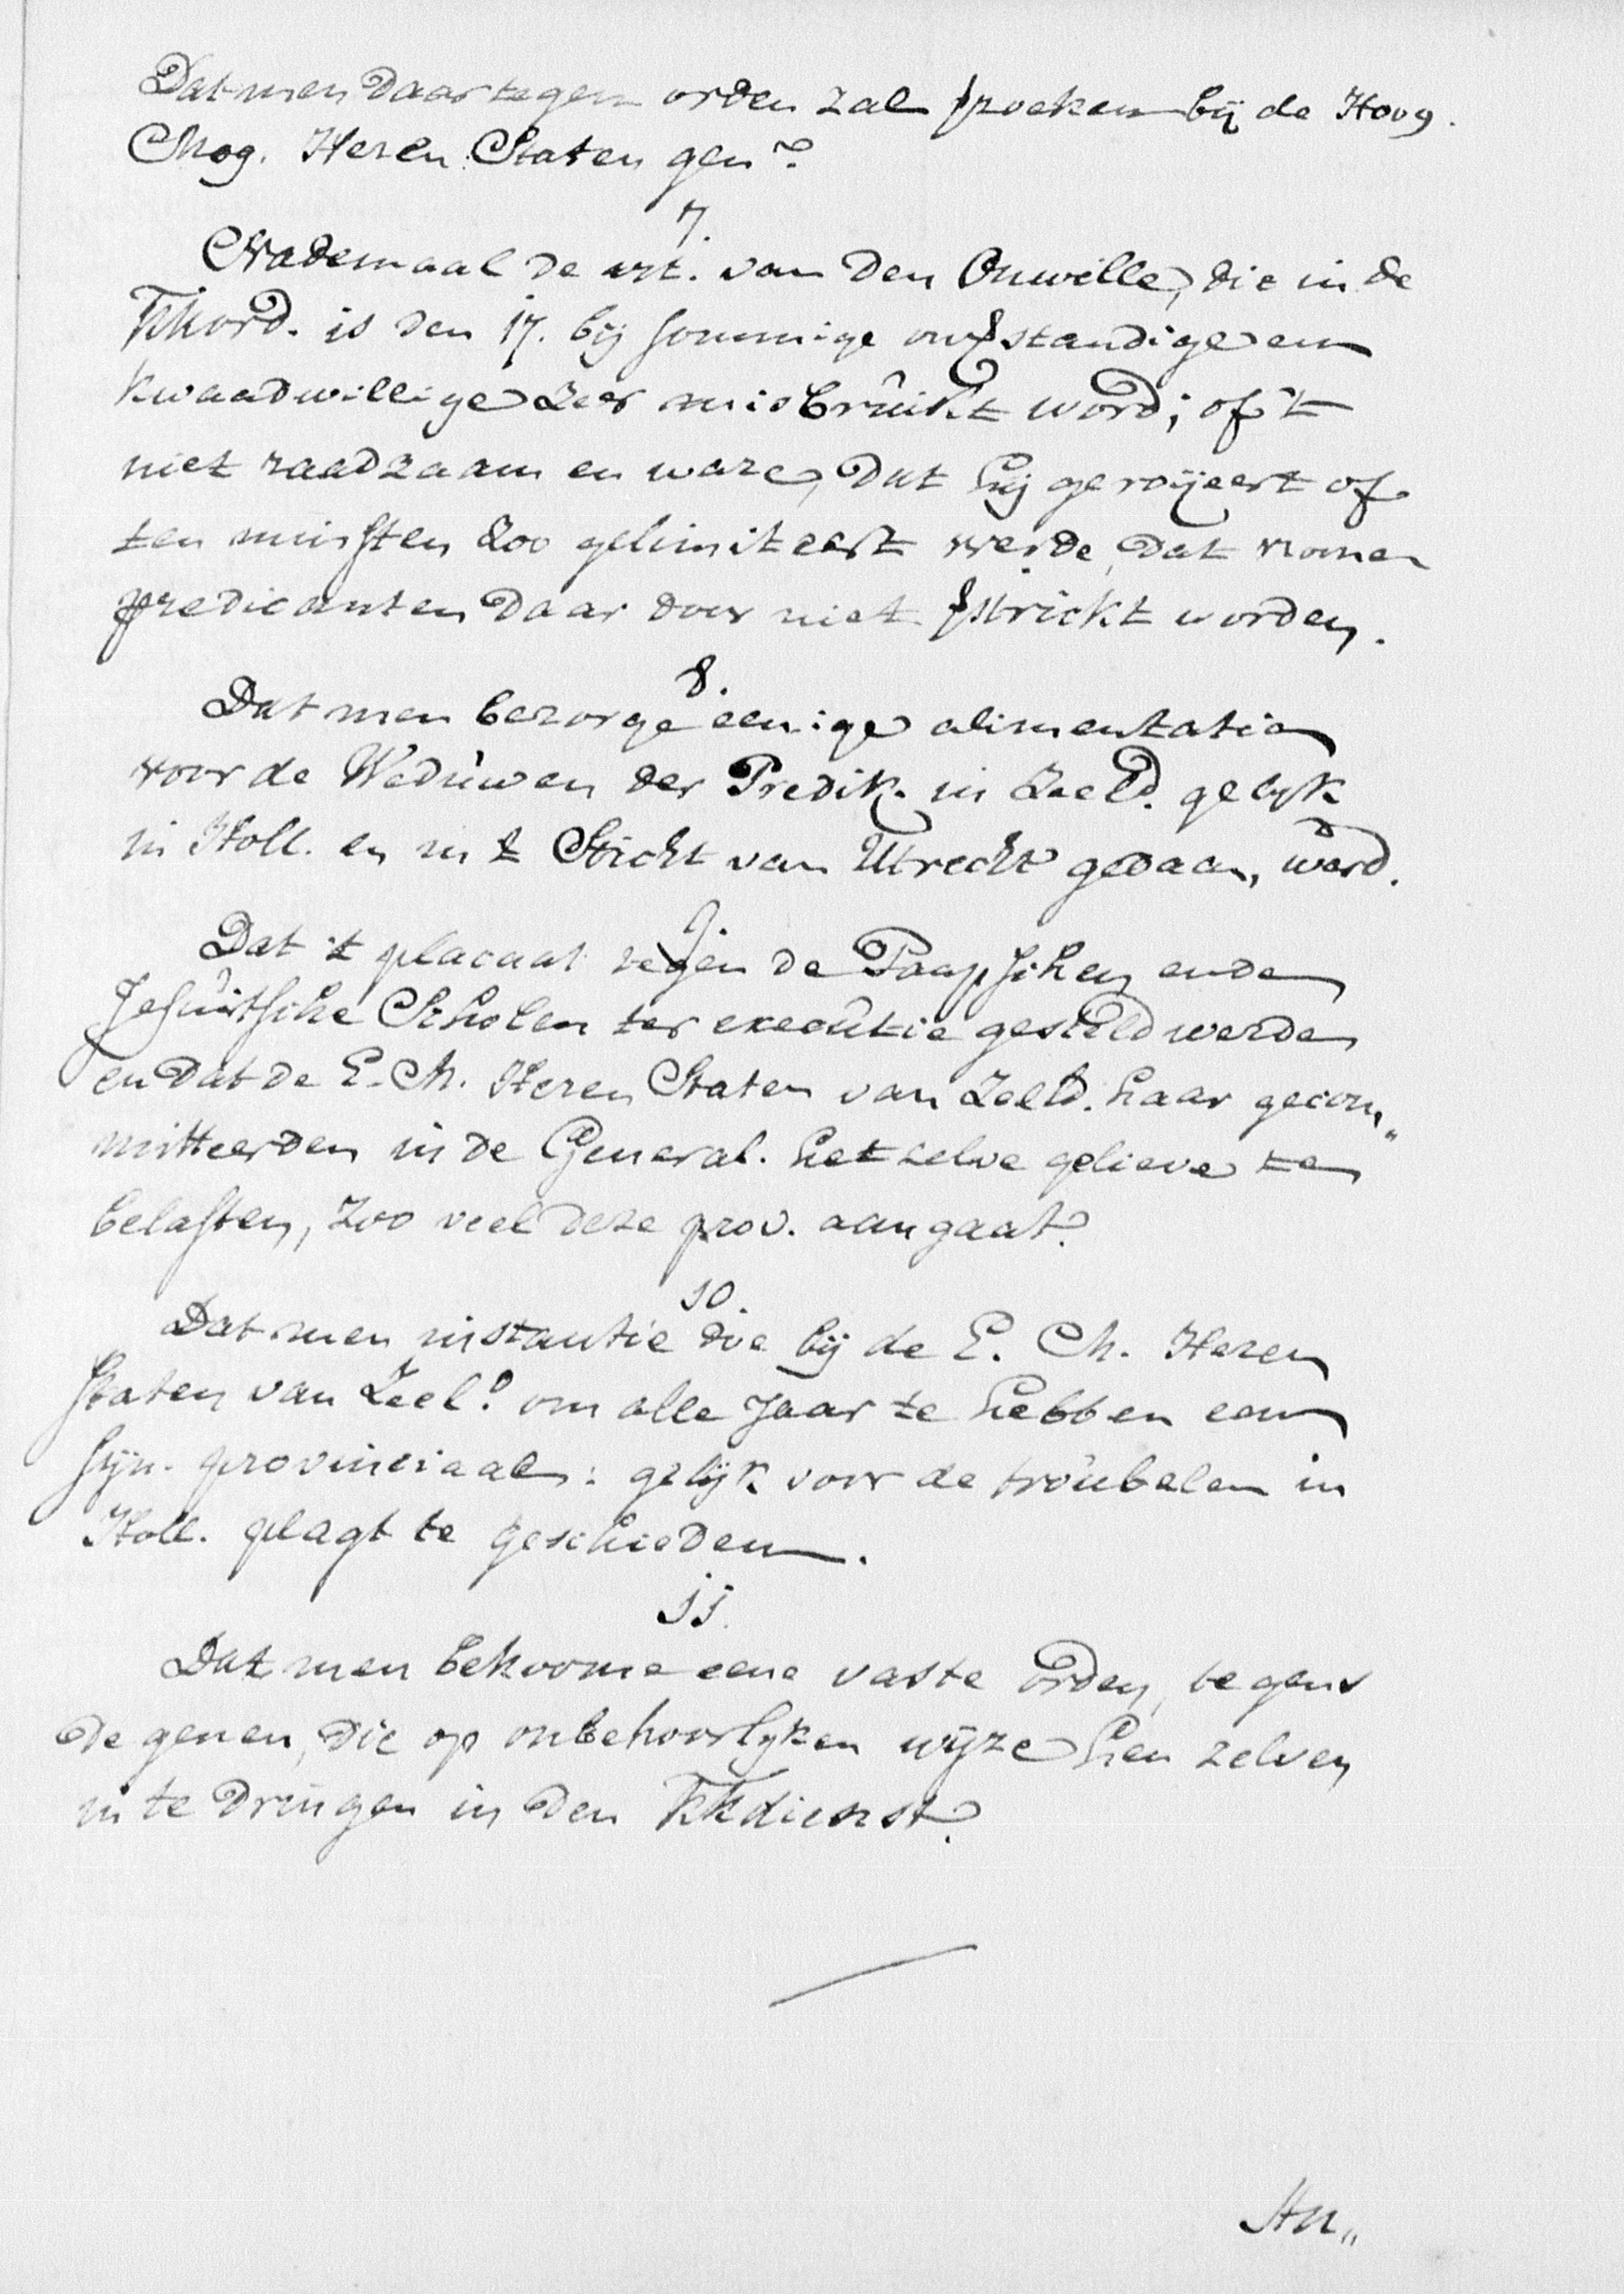 Dat men daar tegen orden zal zoeken bij de Hoog.
Mog. Heren Staten genl.
7.
Nademaal de art. van den Onwille, die in de
KKord. is den 17. bij sommige onverstandige en
kwaadwillige zeer misbruikt word; of 't
niet raadzaam en ware, dat hij geroijeert of
ten minsten zoo gelimiteert werde, dat vrome
predicanten daar door niet verstrickt worden.
8.
Dat men bezorge eenige alimentatie
voor de Weduwen der Predik. in Zeeld. gelijk
in Holl. en in 't Sticht van Utrecht gedaan, word.
9.
Dat 't placaat tegen de Paapschen ende
Jesuitsche Scholen ter executie gesteld werde,
en dat de E. M. Heren Staten van Zeeld. haar gecom„
mitteerden in de General. het zelve gelieve te
belasten, zoo veel deze prov. aangaat.
10.
Dat men instantie doe bij de E. M. Heren
Staten van Zeeld. om alle jaar te hebben een
Syn. provinciaal: gelijk voor de troubelen in
Holl. plagt te geschieden.
11.
Dat men bekoome eene vaste orden, tegens
de genen, die op onbehoorlyken wijze hen zelven
in te dringen in den KKdienst.
An„